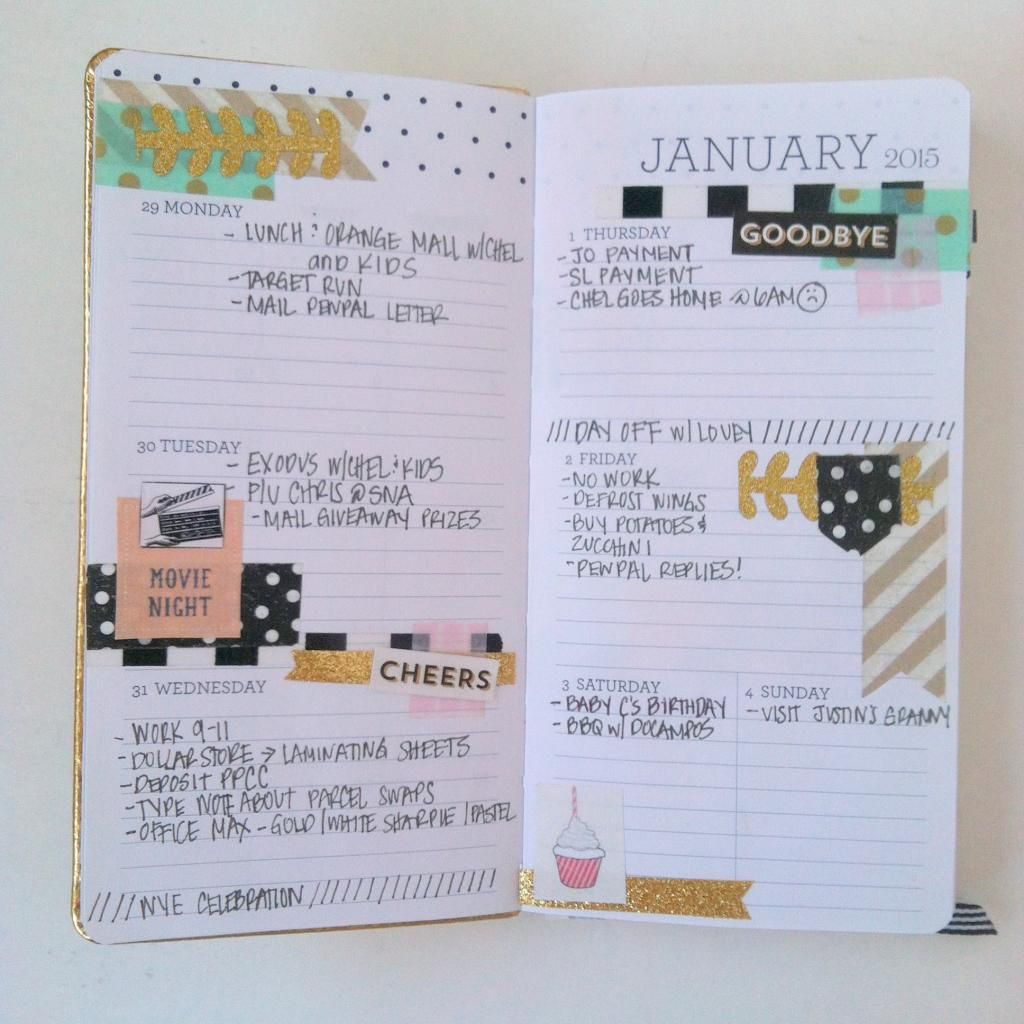 29 MONDAY
- LUNCH : ORANGE MALL W/CHEL
and KIDS
- TARGET RUN
- MAIL PENPAL LETTER
30 TUESDAY
- EXODUS W/CHEL : KIDS
P/U CHRIS @ SNA
- MAIL GIVEAWAY PRIZES
MOVIE
NIGHT
CHEERS
31 WEDNESDAY
- WORK 9-11
- DOLLAR STORE → LAMINATING SHEETS
- DEPOSIT PPCC
- TYPE NOTE ABOUT PARCEL SWAPS
- OFFICE MAX - GOLD/WHITE SHARPIE /PASTEL
////NYE CELEBRATION///////////////
JANUARY 2015
GOODBYE
1 THURSDAY
- JO PAYMENT
- SL PAYMENT
- CHEL GOES HOME @ 6AM ☹
///DAY OFF W/ LOVEY///////////////
2 FRIDAY
- NO WORK
- DEFROST WINGS
- BUY POTATOES &
ZUCCHINI
- PENPAL REPLIES!
3 SATURDAY
- BABY C'S BIRTHDAY
- BBQ W/ DOCAMPOS
4 SUNDAY
- VISIT JUSTIN'S GRANNY